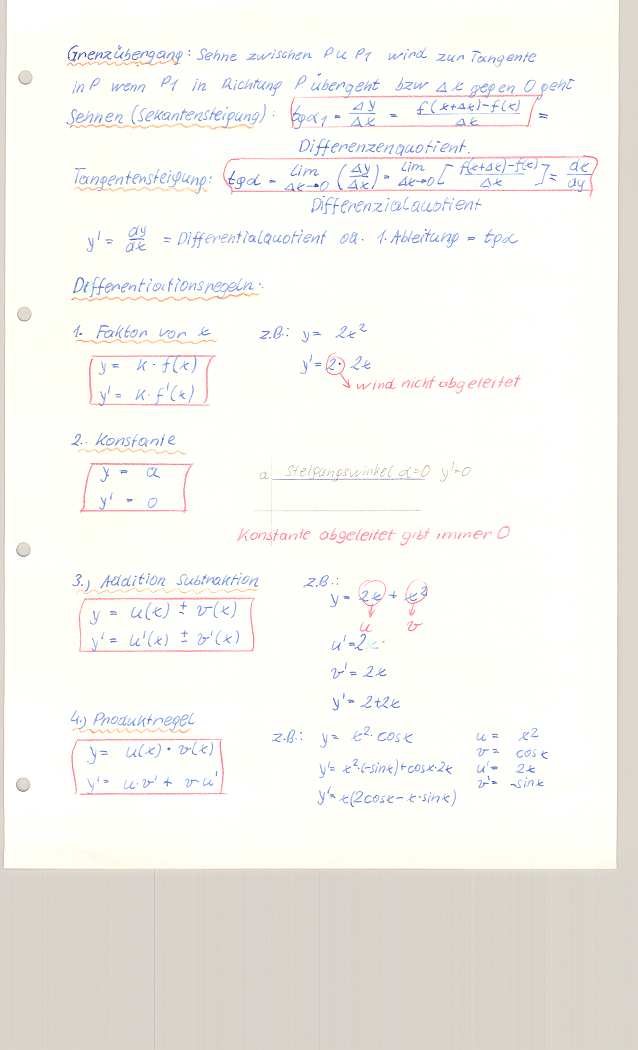 Grenzübergang: Sehne zwischen P u P1 wird zur Tangente
in P wenn P1 in Richtung P übergeht bzw Δx gegen 0 geht
Sehnen (Sekantensteigung): tgα1 = Δy/Δx = f(x+Δx)-f(x)/Δx =
Differenzenquotient.
Tangentensteigung: tgα = Lim Δx→0 (Δy/Δx) = Lim Δx→0 [f(x+Δx)-f(x)/Δx] = dx/dy
Differenzialquotient
y' = dy/dx = Differentialquotient od. 1. Ableitung = tgα
Differentiationsregeln:
1. Faktor vor x z.B.: y = 2x²
y = k · f(x) y' = 2 · 2x
y' = k · f'(x) wird nicht abgeleitet
2. Konstante
y = a a Steigungswinkel α=0 y'=0
y' = 0
Konstante abgeleitet gibt immer 0
3.) Addition Subtraktion z.B.:
y = u(x) ± v(x) y = 2x + x²
y' = u'(x) ± v'(x) u v
u' = 2
v' = 2x
y' = 2+2x
4.) Produktregel z.B.: y = x² · cosx u = x²
y = u(x) · v(x) v = cosx
y' = u·v' + v·u' y' = x²·(-sinx)+cosx·2x u' = 2x
v' = -sinx
y' = x(2cosx - x·sinx)